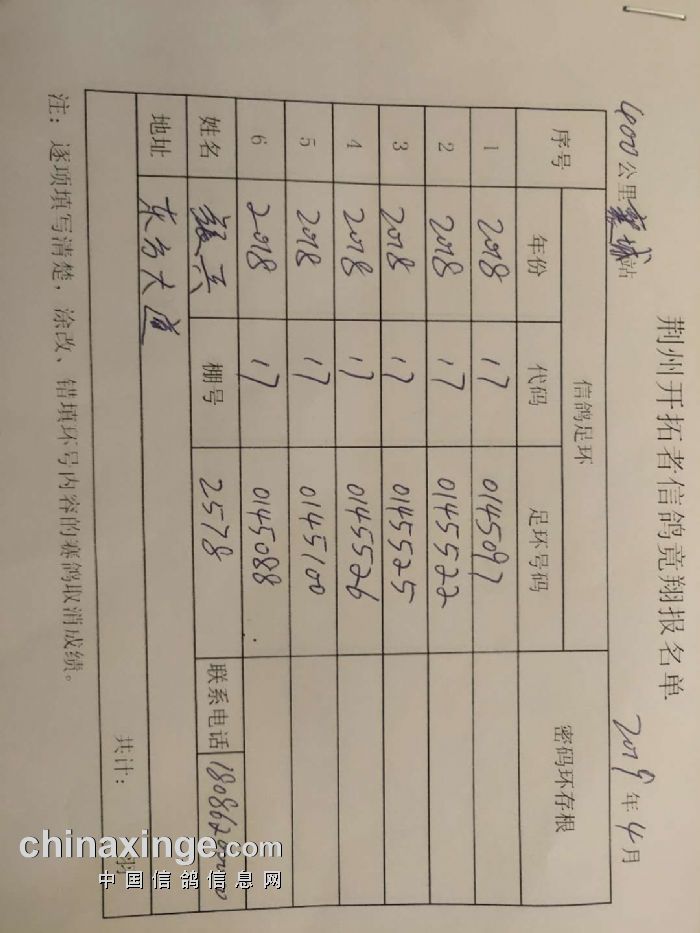 荆州开拓者信鸽竟翔报名单
4000公里襄城站 2019年4月
序号 信鸽足环 密码环存根
年份 代码 足环号码
1 2018 17 0145097
2 2018 17 0145522
3 2018 17 0145525
4 2018 17 0145526
5 2018 17 0145100
6 2018 17 0145088
姓名 棚号 2578 联系电话
地址 东方大道
共计： 羽
注：逐项填写清楚，涂改、错填环号内容的赛鸽取消成绩。
chinaxinge.com
中国信鸽信息网